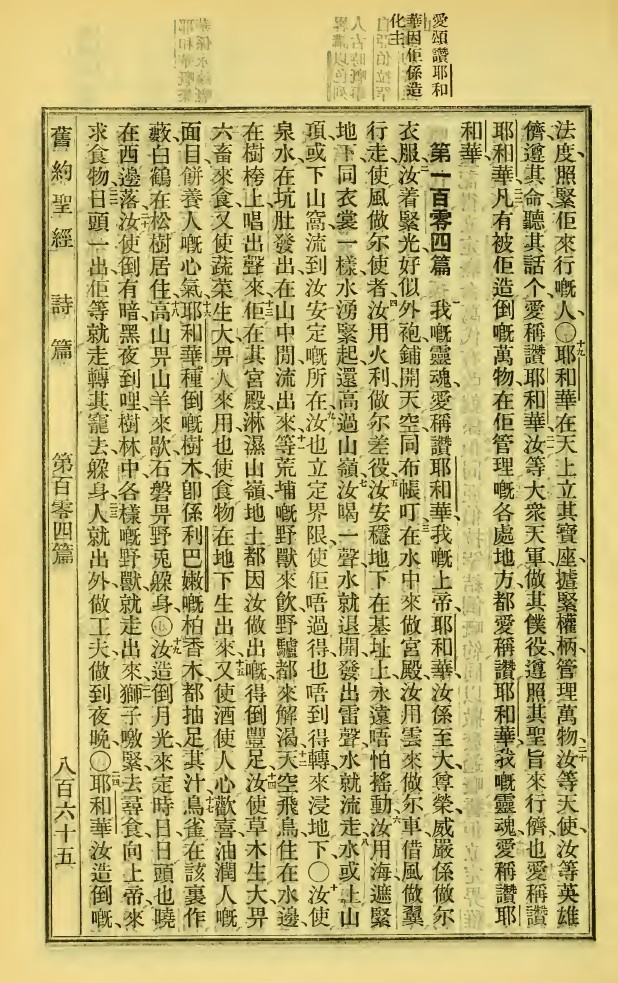 愛頌讚耶和
華因佢係造
化主
法度照緊佢來行嘅人〇十九耶和華在天上立其寶座㨪緊權柄管理萬物二十汝等天使汝等英雄
儕遵其命聽其話个愛稱讚耶和華二一汝等大衆天軍做其僕役遵照其聖旨來行儕也愛稱讚
耶和華二二凡有被佢造倒嘅萬物在佢管理嘅各處地方都愛稱讚耶和華我嘅靈魂愛稱讚耶
和華
第一百零四篇 一我嘅靈魂愛稱讚耶和華二我嘅上帝耶和華汝係至大尊榮威嚴係做尔
衣服二汝着緊光好似外袍鋪開天空同布帳三叮在水中來做宮殿汝用雲來做尔車借風做翼
行走四使風做尔使者汝用火利做尔差役五汝安穩地下在基址上永遠唔怕搖動六汝用海遮緊
地下同衣裳一樣水湧緊起還高過山嶺七汝喝一聲水就退開發出雷聲水就流走八水或上山
項或下山窩流到汝安定嘅所在九汝也立定界限使佢唔過得也唔到得轉來浸地下〇十汝使
泉水在坑肚發出在山中間流出來十一等荒埔嘅野獸來飮野驢都來解渴十二天空飛鳥住在水邊
在樹桍上唱出聲來十三佢在其宮殿淋濕山嶺地土都因汝做出嘅得倒豐足十四汝使草木生大畀
六畜來食又使蔬菜生大畀人來用也使食物在地下生出來十五又使酒使人心歡喜油潤人嘅
面目餅養人嘅心氣十六耶和華種倒嘅樹木卽係利巴嫩嘅柏香木都抽足其汁十七鳥雀在該裏作
藪白鶴在松樹居住十八高山畀山羊來歇石磐畀野兎躲身〇十九汝造倒月光來定時日日頭也曉
在西邊落二十汝使倒有暗黑夜到哩樹林中各樣嘅野獸就走出來二一獅子噭緊去尋食向上帝來
求食物二二日頭一出佢等就走轉其竉去躲身二三人就出外做工夫做到夜晚〇二四耶和華汝造倒嘅
舊約聖經 詩篇 第百零四篇 八百六十五